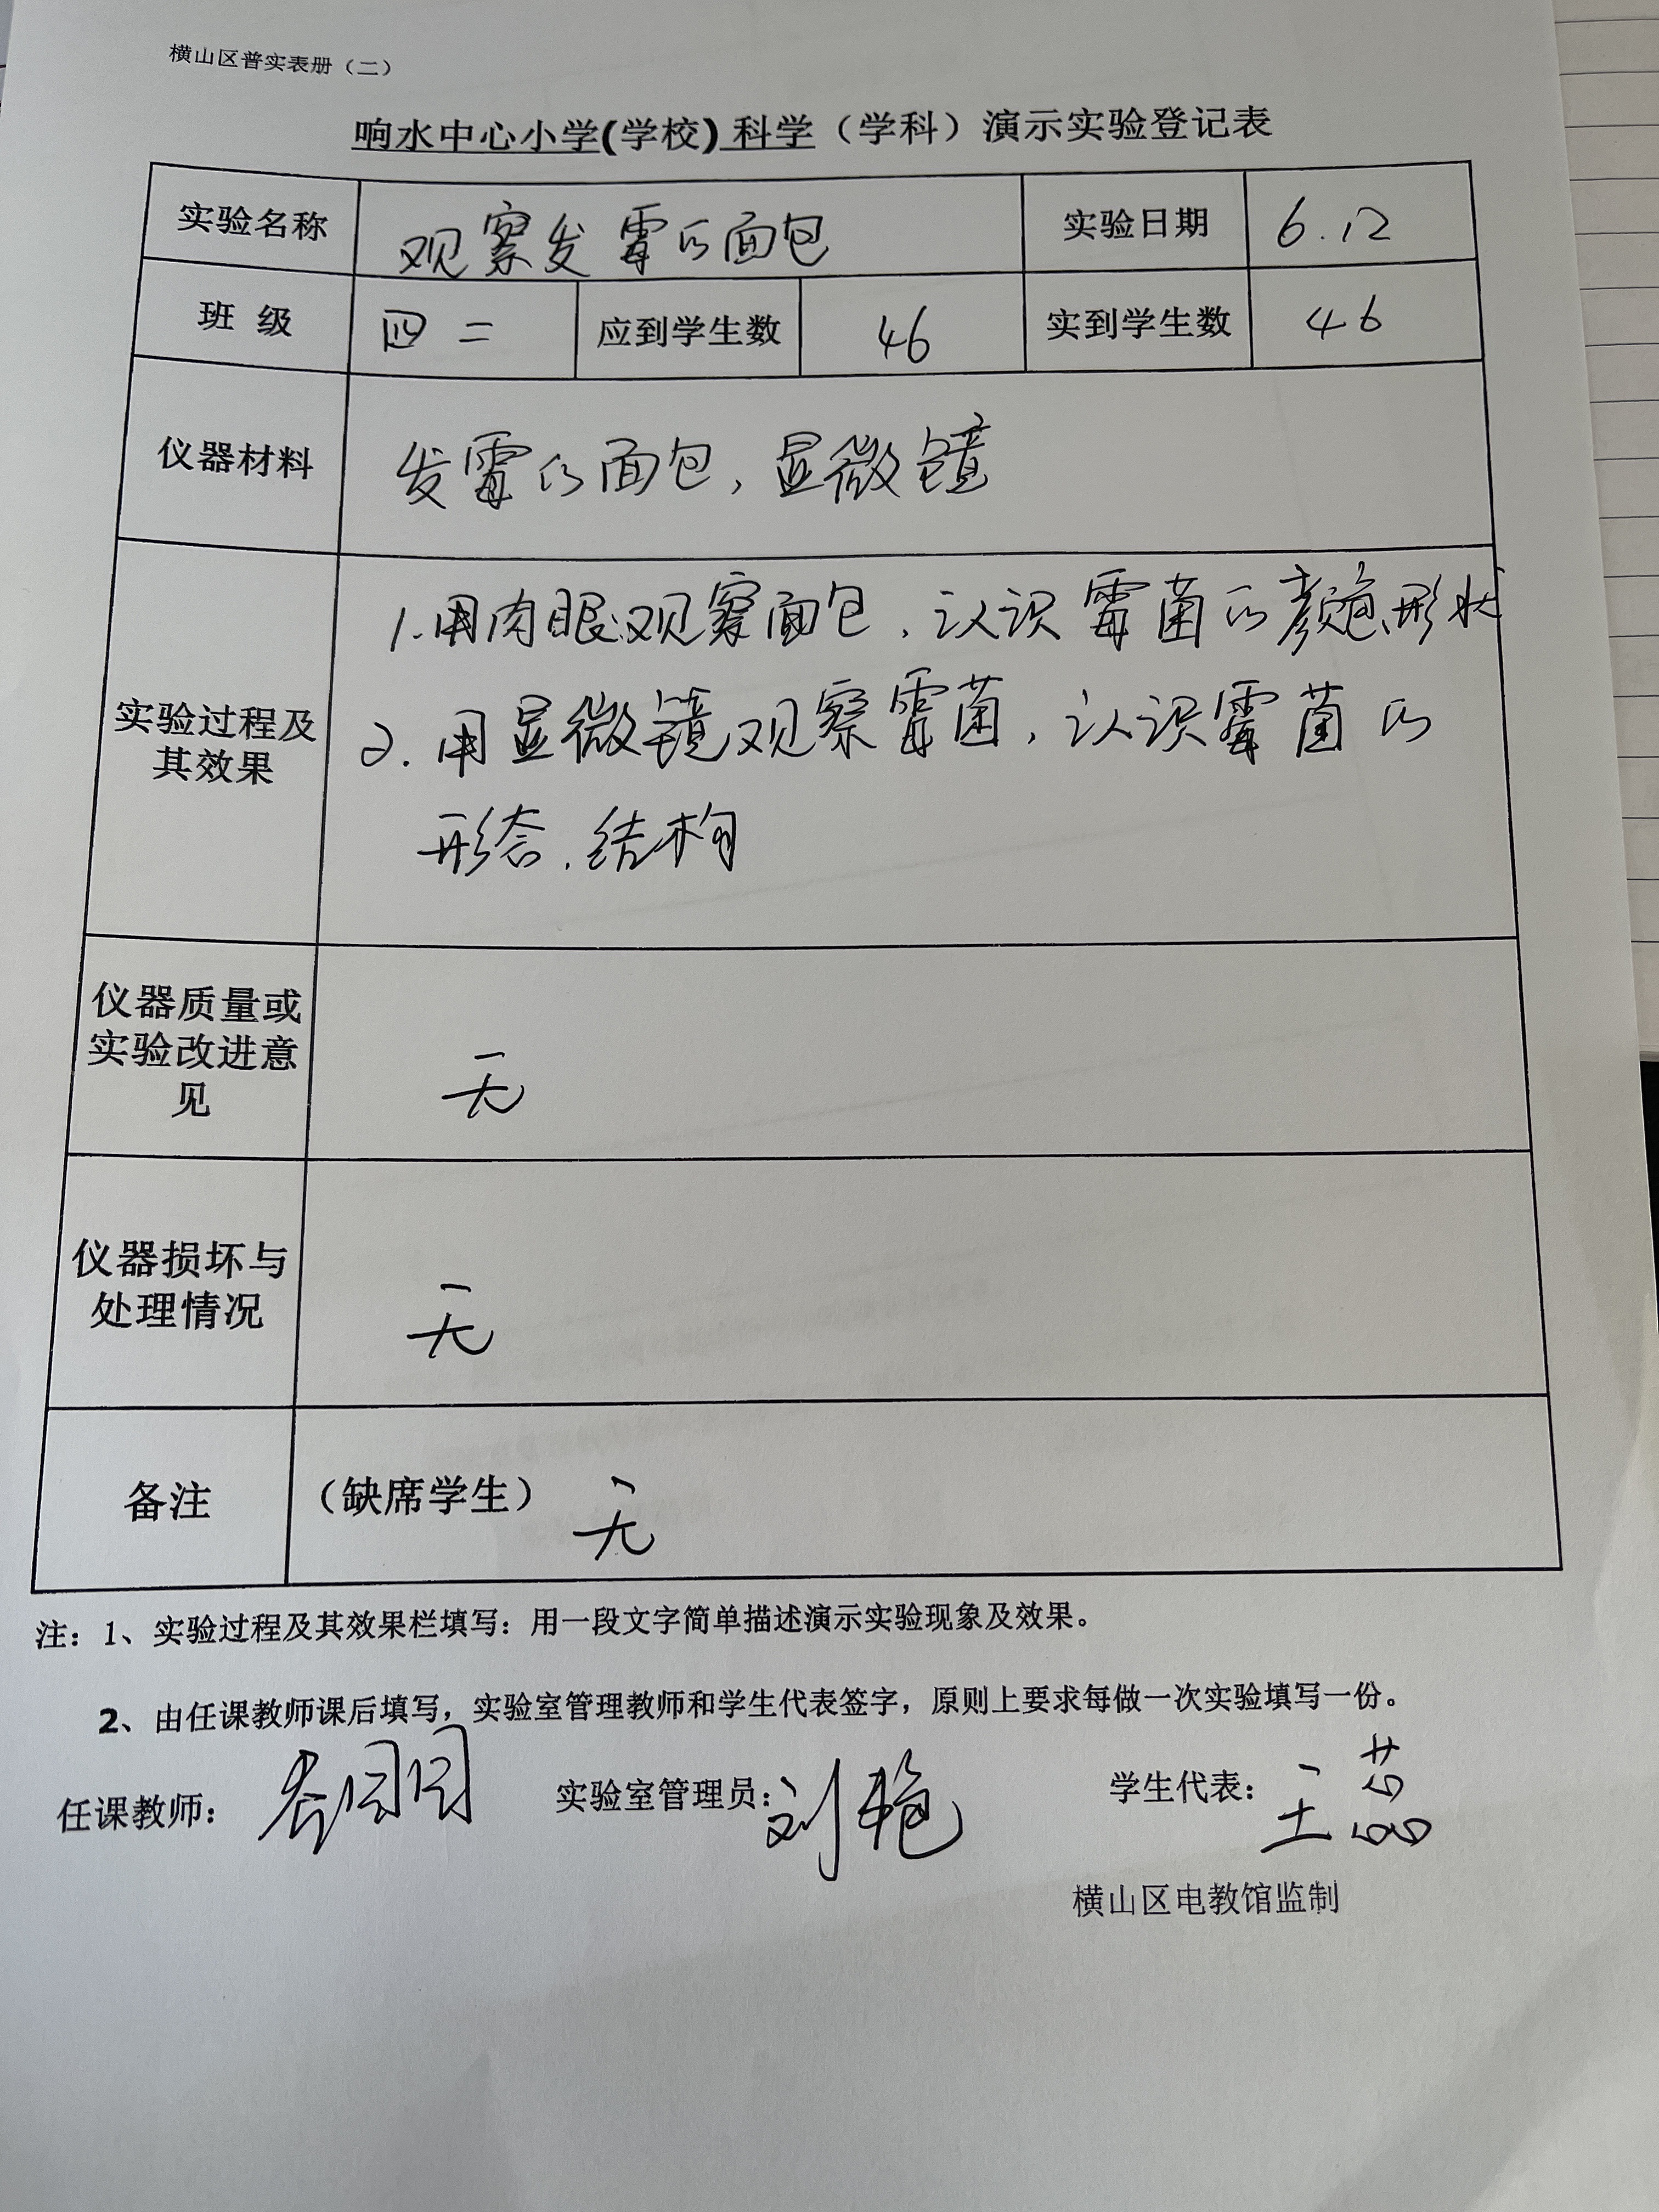 横山区普实表册（二）
响水中心小学(学校) 科学（学科）演示实验登记表
实验名称 观察发霉的面包 实验日期 6.12
班 级 四二 应到学生数 46 实到学生数 46
仪器材料 发霉的面包，显微镜
1.用肉眼观察面包，认识霉菌的颜色、形状
实验过程及 2.用显微镜观察霉菌，认识霉菌的
其效果
形态、结构
仪器质量或
实验改进意
见
无
仪器损坏与
处理情况
无
备注 （缺席学生） 无
注：1、实验过程及其效果栏填写：用一段文字简单描述演示实验现象及效果。
2、由任课教师课后填写，实验室管理教师和学生代表签字，原则上要求每做一次实验填写一份。
任课教师： 实验室管理员：刘艳 学生代表：王蕊
横山区电教馆监制